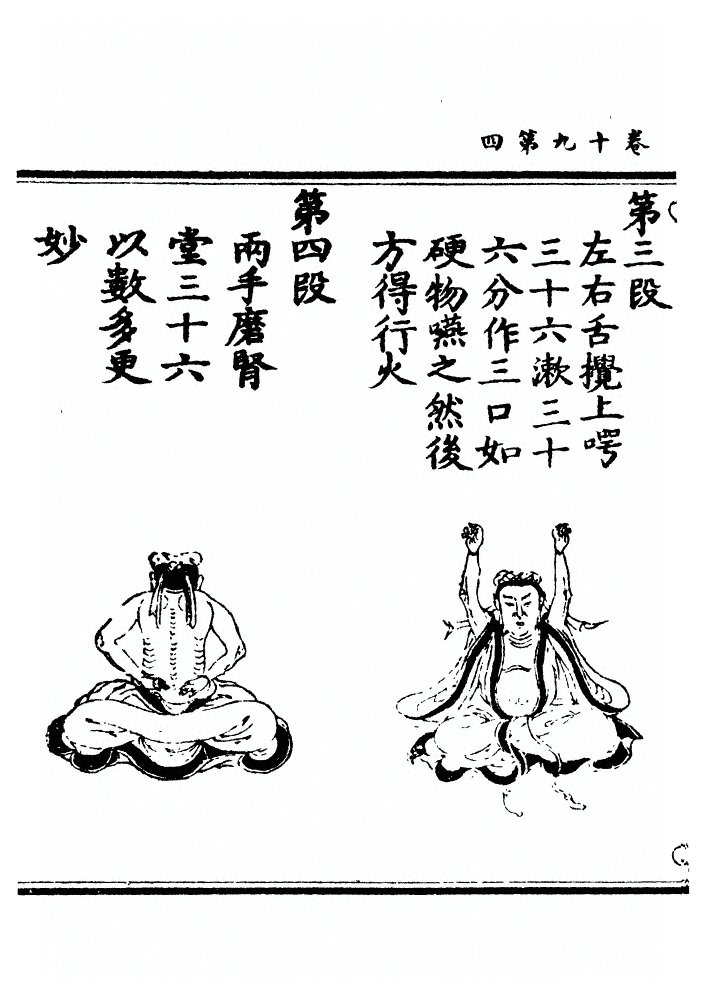 卷十九第四
第三段
左右舌攪上咢
三十六漱三十
六分作三口如
硬物嚥之然後
方得行火
第四段
兩手磨腎
堂三十六
以數多更
妙